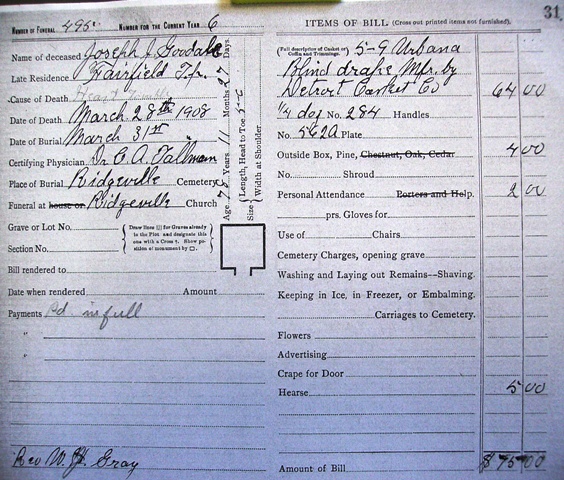 31
NUMBER OF FUNERAL 495 NUMBER FOR THE CURRENT YEAR 6
Name of deceased Joseph J. Goodale
Late Residence Fairfield Tp.
Cause of Death Heart Trouble
Date of Death March 28th 1908
Date of Burial March 31st
Certifying Physician Dr C. A. Tallman
Place of Burial Ridgeville Cemetery
Funeral at house or Ridgeville Church
Age Years 11 Months 27 Days
Size Length, Head to Toe
Width at Shoulder
Grave or Lot No.
Section No.
Draw lines for Graves already in the Plot and designate this one with a Cross †. Show position of monument by
Bill rendered to
Date when rendered Amount
Payments Pd in full
"
"
Rev W. H. Gray
ITEMS OF BILL (Cross out printed items not furnished).
(Full description of Casket or Coffin and Trimmings. 5-9 Urbana
Blind drape Mfr. by
Detroit Casket Co 64 00
1/4 doz No. 284 Handles
No. 562a Plate
Outside Box, Pine, Chestnut, Oak, Cedar 4 00
No. Shroud
Personal Attendance Porters and Help. 2 00
prs. Gloves for
Use of Chairs
Cemetery Charges, opening grave
Washing and Laying out Remains—Shaving.
Keeping in Ice, in Freezer, or Embalming.
Carriages to Cemetery.
Flowers
Advertising
Crape for Door
Hearse 5 00
Amount of Bill $ 75 00